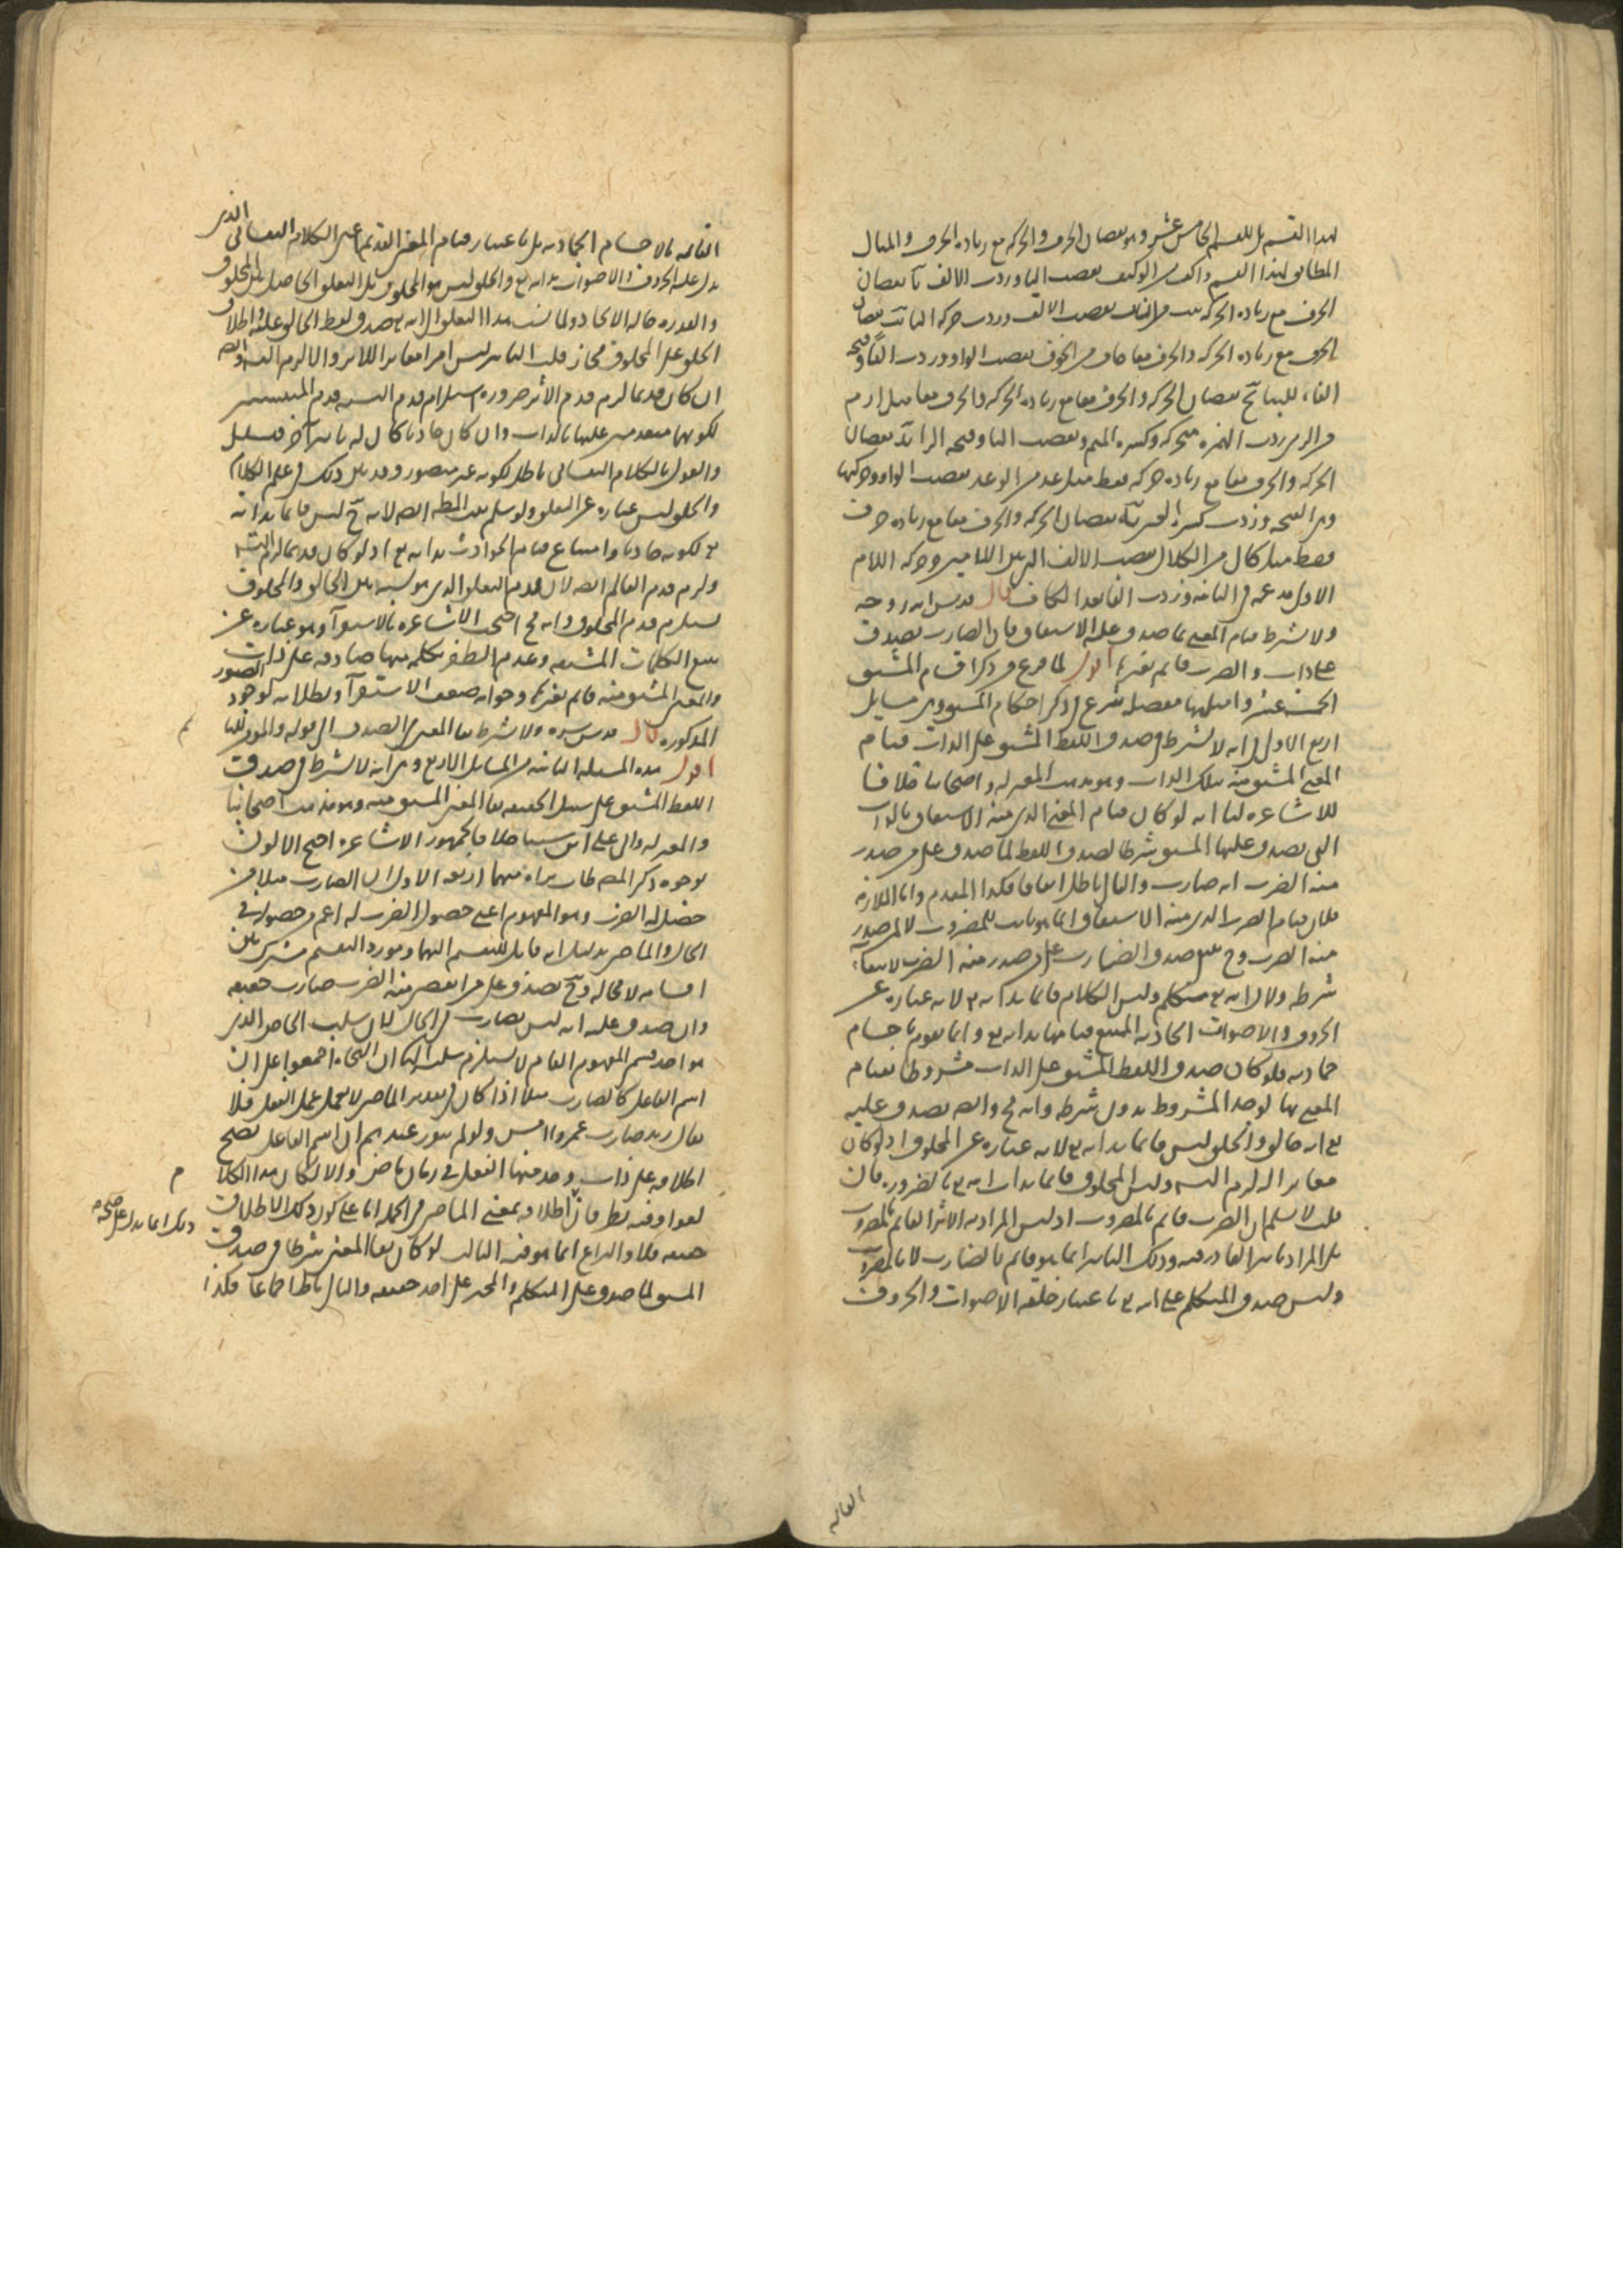 لهذا القسم بل للقسم الخامس عشر وهو نقصان الحرف والحركة مع زيادة الحرف والمثال
المطابق لهذا القسم واكف من الوكيف نقصت اليا وزدت الالف يا نقصان
الحرف مع زيادة الحركة نقصت الالف وزدت حركة التا نقصان
الحرف مع زيادة الحركة والحرف معا خاف من الخوف نقصت الواو وزدت الفا وفتحة
الفاء للبناء نقصان الحركة والحرف معا مع زيادة الحركة والحرف معا مثل ارم
من الرمي زدت الهمزة متحركة وكسرة الميم ونقصت اليا وفتحة الرا نقصان
الحركة والحرف معا مع زيادة حركة فقط مثل عد من الوعد نقصت الواو وحركتها
وزدت كسرة العين نقصان الحركة والحرف معا مع زيادة حرف
فقط مثل كال من الكلال نقصت الالف التي بين اللامين وحركة اللام
الاولى مدغمة في الثانية وزدت الفا بعد الكاف قال قدس الله روحه
ولا يشترط قيام المعنى بما صدق عليه الاشتقاق فان الضارب يصدق
على ذات والضرب قائم بغيرها اقول لما فرغ من ذكر اقسام المشتق
الخمسة عشر وامثلتها مفصلة شرع في ذكر احكام المشتق وهي مسايل
اربع الاولى في انه لا يشترط في صدق اللفظ المشتق على الذات قيام
المعنى المشتق منه بتلك الذات وهو مذهب المعتزلة واصحابنا خلافا
للاشاعرة لنا انه لو كان قيام المعنى الذي منه الاشتقاق بالذات
التي يصدق عليها المشتق شرطا لصدق اللفظ لما صدق على من صدر
منه الضرب انه ضارب والتالي باطل اتفاقا فكذا المقدم واما الملازمة
فلان قيام الضرب الذي منه الاشتقاق انما هو ثابت للمضروب لا لمن صدر
منه الضرب وح يمتنع صدق الضارب على من صدر منه الضرب لانتفاء
شرطه ولان الله تع متكلم وليس الكلام قائما بذاته تع لانه عبارة عن
الحروف والاصوات الحادثة الممتنع قيامها بذاته تع وانما تقوم باجسام
جمادية فلو كان صدق اللفظ المشتق على الذات مشروطا بقيام
المعنى بها لوجد المشروط بدون شرطه وانه مح وايضا يصدق عليه
تع انه خالق والخلق ليس قائما بذاته تع لانه عبارة عن المخلوق اذ لو كان
مغايرا له لزم التسلسل وليس المخلوق قائما بذات الله تع بالضرورة فان
قلت لا نسلم ان الضرب قائم بالمضروب اذ ليس المراد به الاثر القائم بالمضروب
بل المراد تاثير القادر فيه وذلك التاثير انما هو قائم بالضارب لا بالمضروب
وليس صدق المتكلم على الله تع باعتبار خلقه الاصوات والحروف
القائمة
القائمة بالاجسام الجمادية بل باعتبار قيام المعنى القديم اعني الكلام النفساني الذي
يدل عليه الحروف والاصوات بذاته تع والخلق ليس هو المخلوق بل التعلق الحاصل بين المخلوق
والقدرة حالة الايجاد ولما نسب هذا التعلق الى الله تع صدق لفظ الخالق عليه واطلاق
الخلق على المخلوق مجاز قلت التاثير ليس امرا مغايرا للاثر والا لزم التسلسل وايضا
ان كان قديما لزم قدم الاثر ضرورة استلزام قدم النسبة قدم المنتسبين
لكونهما متقدمين عليها بالذات وان كان حادثا كان له تاثير اخر فيتسلسل
والقول بالكلام النفساني باطل لكونه غير متصور وقد بين ذلك في علم الكلام
والخلق ليس عبارة عن التعلق ولو سلم ثبت المطلوب ايضا لانه ح ليس قائما بذاته
تع لكونه حادثا وامتناع قيام الحوادث بذاته تع اذ لو كان قديما لزم
ولزم قدم العالم ايضا لان قدم التعلق الذي هو نسبة بين الخالق والمخلوق
يستلزم قدم المخلوق وانه مح احتجت الاشاعرة بالاستقراء وهو عبارة عن
تتبع الكلمات المشتقة وعدم الظفر بكلمة منها صادقة على ذات
والمعنى المشتق منه قائم بغيرها وجوابه ضعف الاستقراء وبطلانه لوجود الصور
المذكورة قال قدس سره ولا يشترط بقاء المعنى في الصدق الى قوله
اقول هذه المسئلة الثانية من المسايل الاربع وهي انه لا يشترط في صدق
اللفظ المشتق على سبيل الحقيقة بقاء المعنى المشتق منه وهو مذهب اصحابنا
والمعتزلة وابي علي بن سينا خلافا لجمهور الاشاعرة احتج الاولون
بوجوه ذكر المص طاب ثراه منها اربعة الاول ان الضارب مثلا من
حصل له الضرب وهو المفهوم اعني حصول الضرب له اعم من حصوله في
الحال والماضي بدليل انه قابل للتقسيم اليهما ومورد التقسيم مشترك بين
اقسامه لا محالة وح يصدق على من انقضى منه الضرب ضارب حقيقة
وان صدق عليه انه ليس بضارب في الحال لان سلب الخاص الذي
هو احد قسمي المفهوم العام لا يستلزم سلب ان النحاة اجمعوا على ان
اسم الفاعل كالضارب مثلا اذا كان في تقدير الماضي لا يعمل عمل الفعل فلا
يقال زيد ضارب عمروا امس ولو لم يتقرر عندهم ان اسم الفاعل يصح
اطلاقه على ذات وجد منها الفعل في زمان ماض والا لكان هذا الكلام
لغوا وفيه نظر فان اطلاقه بمعنى الماضي في الجملة
حقيقة فلا والنزاع انما هو فيه الثالث لو كان بقاء المعنى شرطا في صدق
المشتق لما صدق على المتكلم والمخبر على احد حقيقة والتالي باطل اجماعا فكذا